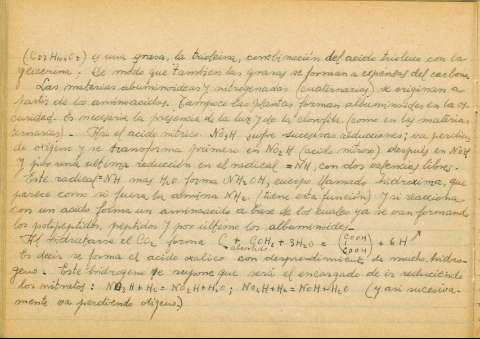 es una grasa, la trioleina, combinación del acido trioleico con la
glicerina. De modo que tambien las grasas se forman a expensas del carbono.
Las materias albuminoideas y nitrogenadas (cuaternarias) se originan a
partir de los aminoacidos. Tampoco las plantas forman albuminoides en la os-
curidad. Es necesaria la presencia de la luz y de la clorofila (como en las materias
ternarias). - Asi el acido nitrico NO3H, sufre sucesivas reducciones; va perdien-
do oxigeno y se transforma primero en NO2H (acido nitroso) despues en NOH
y por una ultima reducción en el radical =NH, con dos valencias libres.
Este radical =NH mas H2O forma NH2OH, cuerpo llamado hidroxima, que
parece como si fuera la amina NH2 (tiene esta función) y si reacciona
con un acido forma un aminoacido a base de los cuales ya se van formando
los polipeptidos, peptidos y por ultimo los albuminoides.
Al hidratarse el forma + 3H2O = + 6H
Es decir se forma el acido oxalico con desprendimiento de mucho hidro-
geno. Este hidrogeno se supone que será el encargado de ir reduciendo
los nitratos: NO3H+H2 = NO2H+H2O; NO2H+H2 = NOH+H2O (y asi sucesiva-
mente va perdiendo oxigeno)